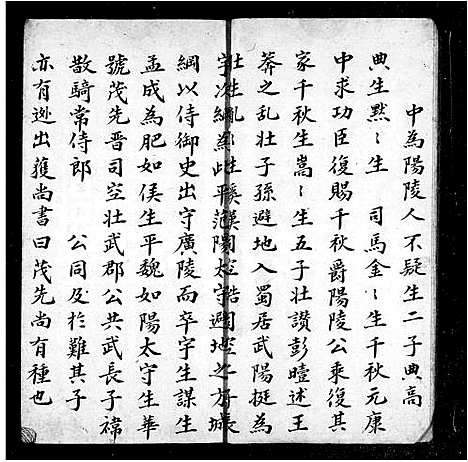 中為陽陵人不疑生二子典高
典生默〻生　司馬金〻生千秋元康
中求功臣復賜千秋爵陽陵公乘復其
家千秋生嵩〻生五子壯讚彭曀述王
莽之亂壯子孫避地入蜀居武陽挺為
宇次綱為此平范陽太守避地之方城
綱以侍御史出守廣陵而卒宇生謀生
孟成為肥如侯生平魏如陽太守生華
號茂先晋司空壯武郡公共武長子禕
散騎常侍郎　公同及於難其子
亦有逊出獲尚書曰茂先尚有種也